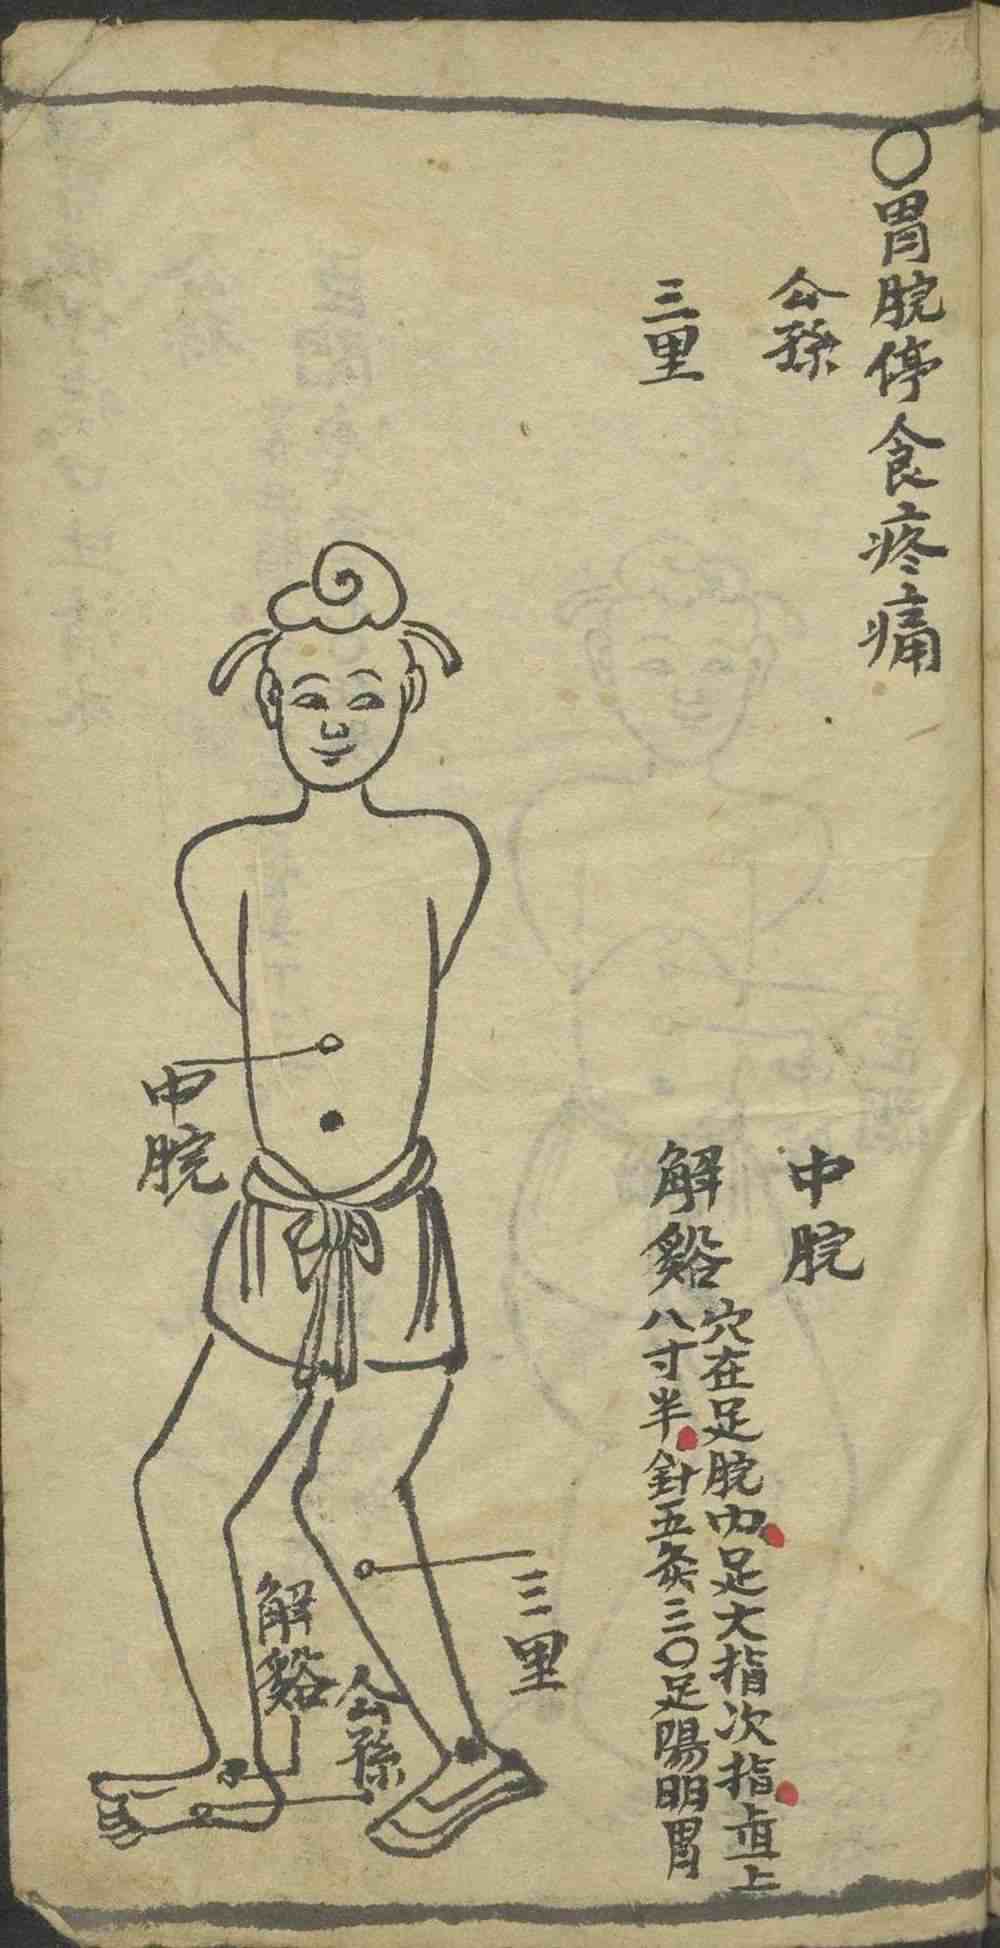 〇胃脘停食疼痛
公孫
中脘
三里
解谿
穴在足脘內足大指次指直上
八寸半針五灸三〇足陽明胃
中脘
三里
解谿
公孫